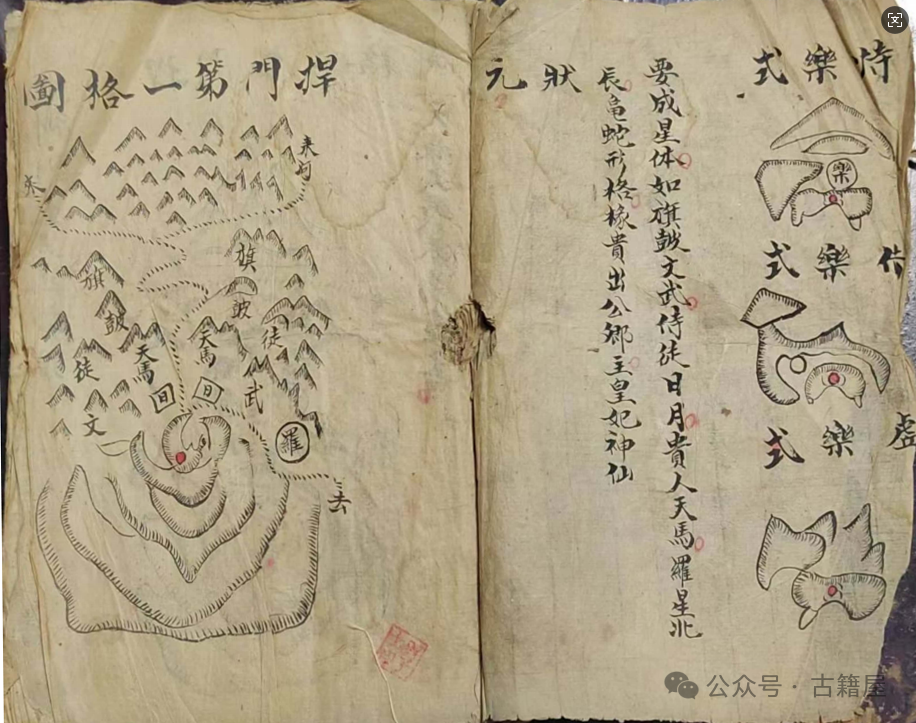 侍樂式
樂
侍樂式
虛樂式
要成星体如旗鼓文武侍徒日月貴人天馬羅星北
辰龟蛇形格椽貴出公卿主皇妃神仙
狀元
捍門第一格圖
来
来
旗
旗
鼓
鼓
天馬
天馬
徒
徒
文
武
羅
去
公众号·古籍屋